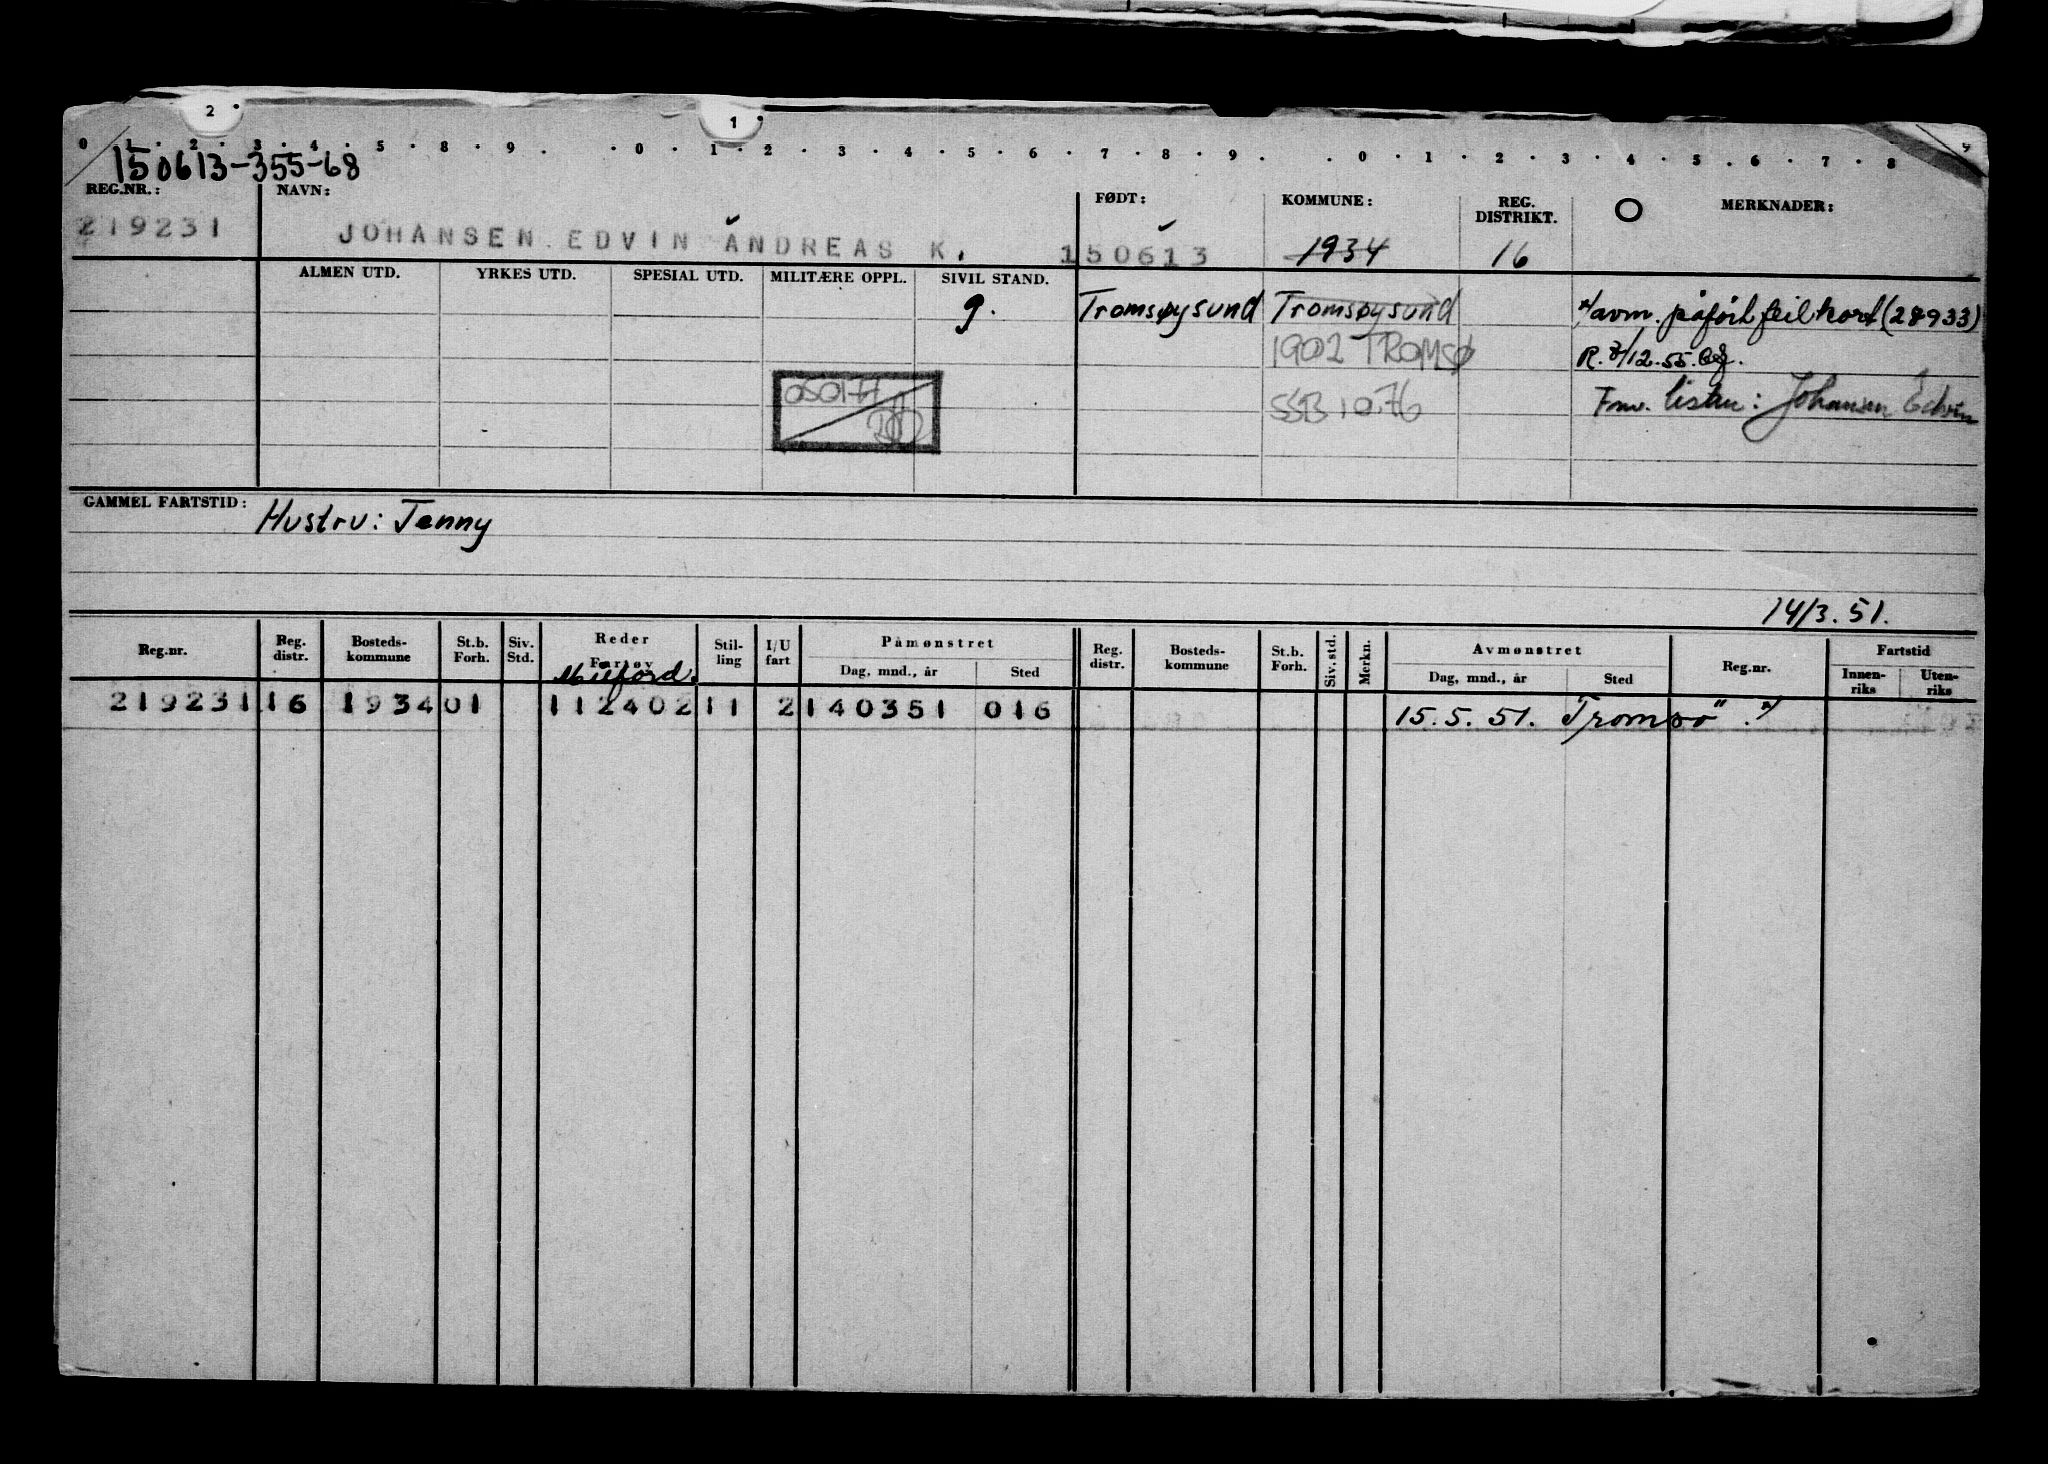 2 1
0 . 1 . 2 . 3 . 4 . 5 . 8 . 9 . . 0 . 1 . 2 . 3 . 4 . 5 . 6 . 7 . 8 . 9 . . 0 . 1 . 2 . 3 . 4 . 5 . 6 . 7 . 8 . 9
150613-355-68
REG.NR.: NAVN: FØDT: KOMMUNE: REG. DISTRIKT. O MERKNADER:
219231 JOHANSEN EDVIN ANDREAS K. 150613 1934 16
ALMEN UTD. YRKES UTD. SPESIAL UTD. MILITÆRE OPPL. SIVIL STAND.
g. Tromsøysund Tromsøysund x/avm. påført feil kort (28933)
1902 TROMSØ R. 3/12.55.
050177 SSB 10.76 listen: Johansen Edvin
GAMMEL FARTSTID: Hustru: Jenny
14/3.51.
Reg.nr. Reg. distr. Bosteds-kommune St.b. Forh. Siv. Std. Reder Fartøy Stil-ling I/U fart Påmønstret Dag, mnd., år Sted Reg. distr. Bosteds-kommune St.b. Forh. Siv. std. Merkn. Avmønstret Dag, mnd., år Sted Reg.nr. Fartstid Innen-riks Uten-riks
219231 16 1934 01 112402 11 2 140351 016 15.5.51. Tromsö x/